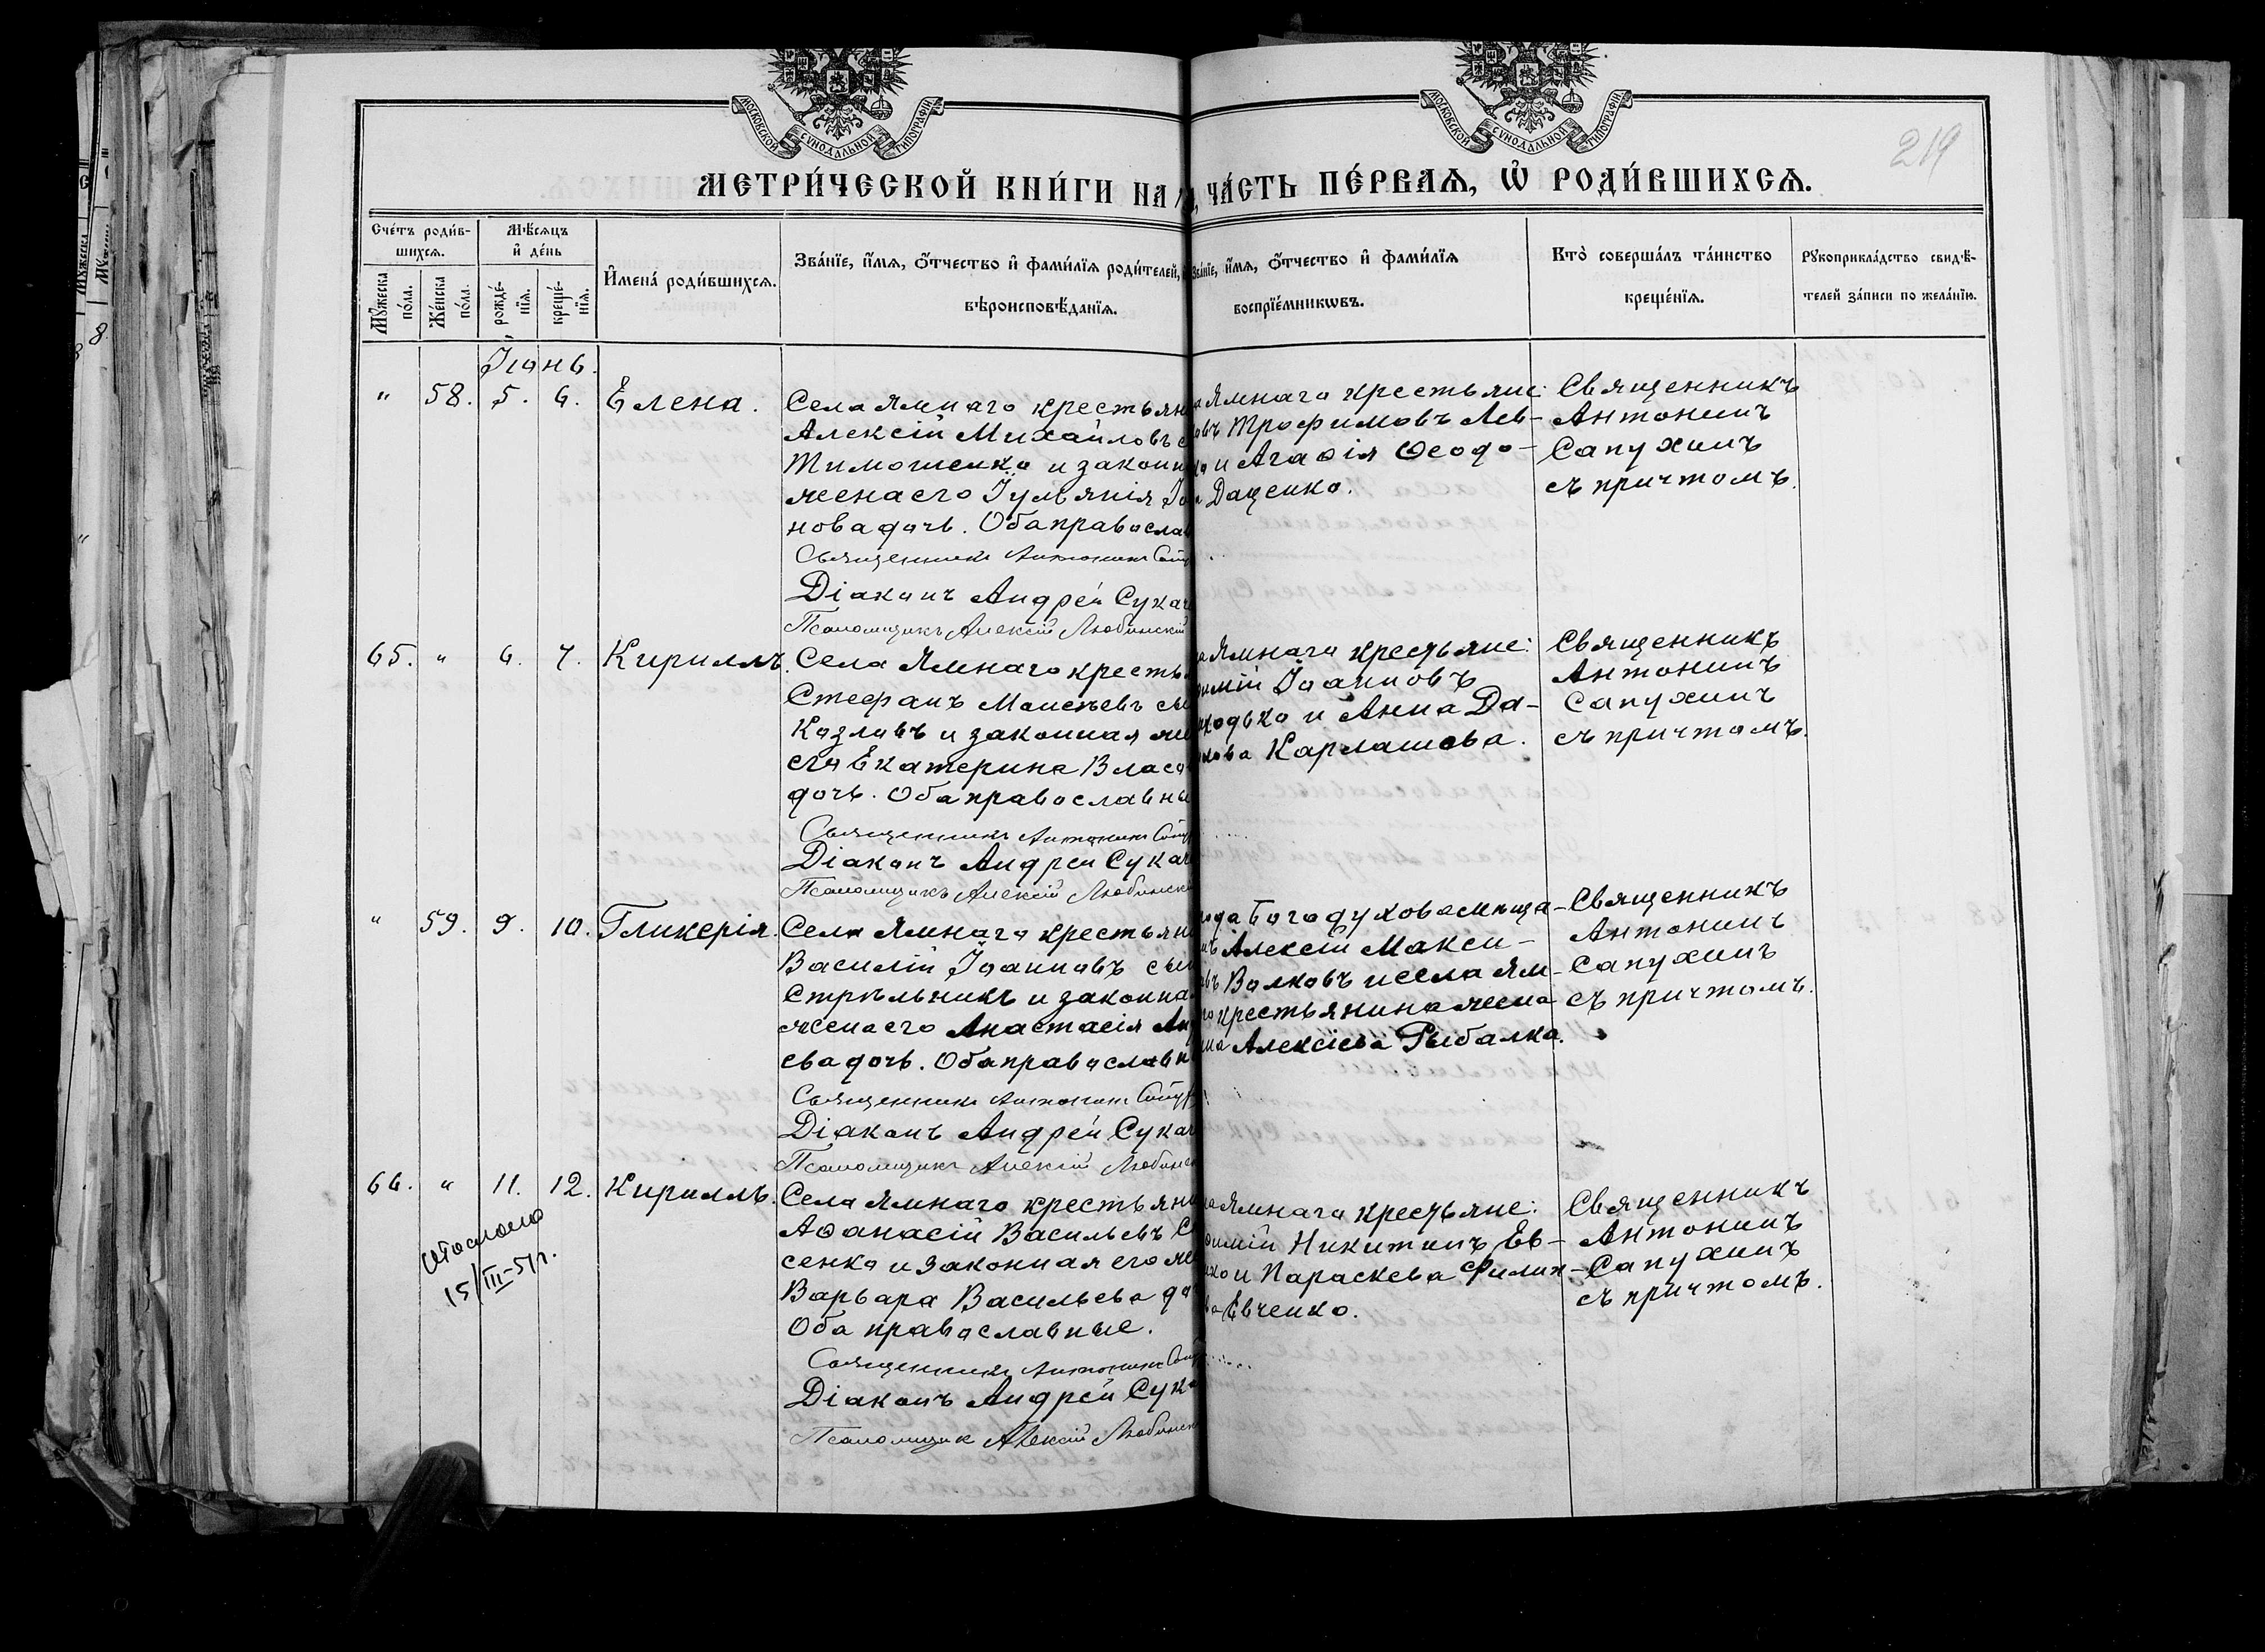 МОСКОВСКОЙ СѴНОДАЛЬНОЙ ТИПОГРАФІИ
МОСКОВСКОЙ СѴНОДАЛЬНОЙ ТИПОГРАФІИ
219
МЕТРИ́ЧЕСКОЙ КНИ́ГИ НА
ЧА́СТЬ ПЕ́РВАѦ, Ѡ҆ РОДИ́ВШИХСѦ.
Сче́тъ роди́в-
шихсѧ.
Мꙋ́жеска
по́ла.
Же́нска
по́ла.
Мѣ́сѧцъ
и҆ де́нь
рожде́-
нїѧ.
креще́-
нїѧ.
И҆мена̀ роди́вшихсѧ.
Зва́нїе, и҆́мѧ, ѻ҆́тчество и҆ фами́лїѧ роди́телей,
вѣроисповѣ́данїѧ.
Зва́нїе, и҆́мѧ, ѻ҆́тчество и҆ фами́лїѧ
воспрїе́мникѡвъ.
Кто̀ соверша́лъ та́инство
креще́нїѧ.
Рꙋкоприкла́дство свидѣ́-
телей за́писи по жела́нїю.
Іюнь.
" 58. 5. 6. Елена.
Села Ямнаго крестьян
Алексій Михайловъ с
Тимошенко и законн
жена его Іуліянія Іо
нова дочь. Оба православ
Священникъ Антонинъ Сапу
Діаконъ Андрей Сукач
Псаломщикъ Алексій Любинскій
Ямнаго крестьяне:
овъ Трофимовъ Лев-
ко и Агафія Ѳеодо-
Даценко.
Священникъ
Антонинъ
Сапухинъ
съ причтомъ.
65. " 6. 7. Кириллъ.
Села Ямнаго кресть
Стефанъ Моисеевъ сы
Козловъ и законная же
его Екатерина Власо
дочь. Оба православны
Священникъ Антонинъ Сапу
Діаконъ Андрей Сукач
Псаломщикъ Алексій Любинск
Ямнаго крестьяне:
имій Іоанновъ
ходько и Анна Да-
кова Карлашова.
Священникъ
Антонинъ
Сапухинъ
съ причтомъ.
" 59. 9. 10. Гликерія.
Села Ямнаго крестьяни
Василій Іоанновъ сын
Стрѣльникъ и законна
жена его Анастасія Ан
ева дочь. Оба православн
Священникъ Антонинъ Сапу
Діаконъ Андрей Сукач
Псаломщикъ Алексій Любинс
ода Богодухова мѣща-
нъ Алексій Макси-
овъ Волковъ и села Ям-
го крестьянина жена
на Алексіева Рыбалка.
Священникъ
Антонинъ
Сапухинъ
съ причтомъ.
66. " 11. 12. Кириллъ.
15/III-51г.
Села Ямнаго крестьяни
Аѳанасій Васильевъ
сенко и законная его же
Варвара Васильева до
Оба православные.
Священникъ Антонинъ Сапу
Діаконъ Андрей Сука
Псаломщик Алексій Любинск
Ямнаго крестьяне:
имій Никитинъ Ев-
нко и Параскева Филип-
ва Евченко.
Священникъ
Антонинъ
Сапухинъ
съ причтомъ.